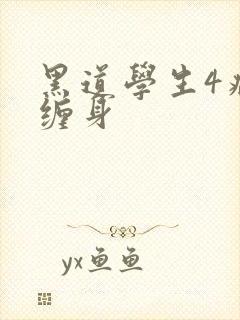 黑道學生4
缠身
yx鱼鱼